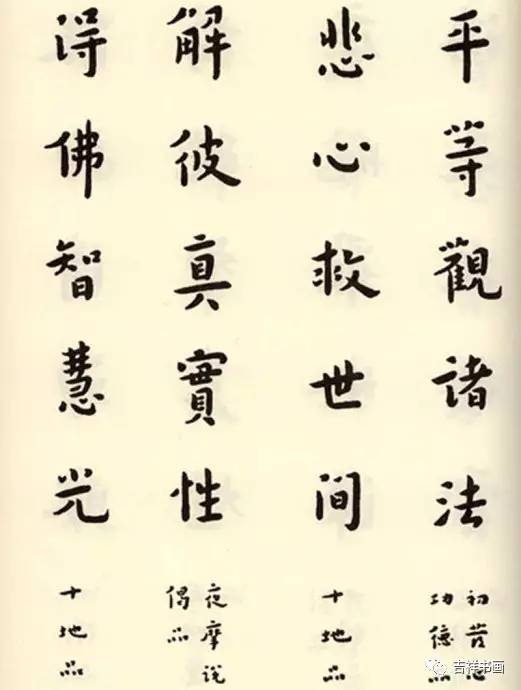 平等觀諸法
初发心
功德品
悲心救世间
十地品
解彼真實性
夜摩说
偈品
得佛智慧光
十地品
吉祥书画